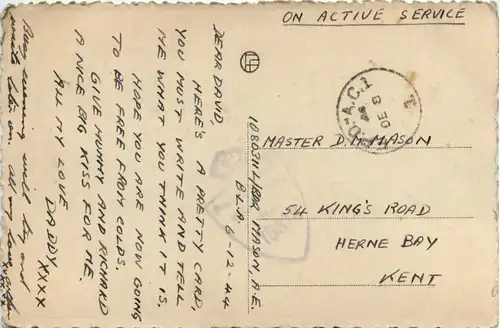 ON ACTIVE SERVICE
10803114/BDR. MASON, A.E.
B.L.A. 6-12-44
DEAR DAVID
HERE'S A PRETTY CARD,
YOU MUST WRITE AND TELL
ME WHAT YOU THINK IT IS.
HOPE YOU ARE NOW GOING
TO BE FREE FROM COLDS.
GIVE MUMMY AND RICHARD
A NICE BIG KISS FOR ME.
ALL MY LOVE
DADDY
XXXX
MASTER D. M. MASON
54 KING'S ROAD
HERNE BAY
KENT
DE
44